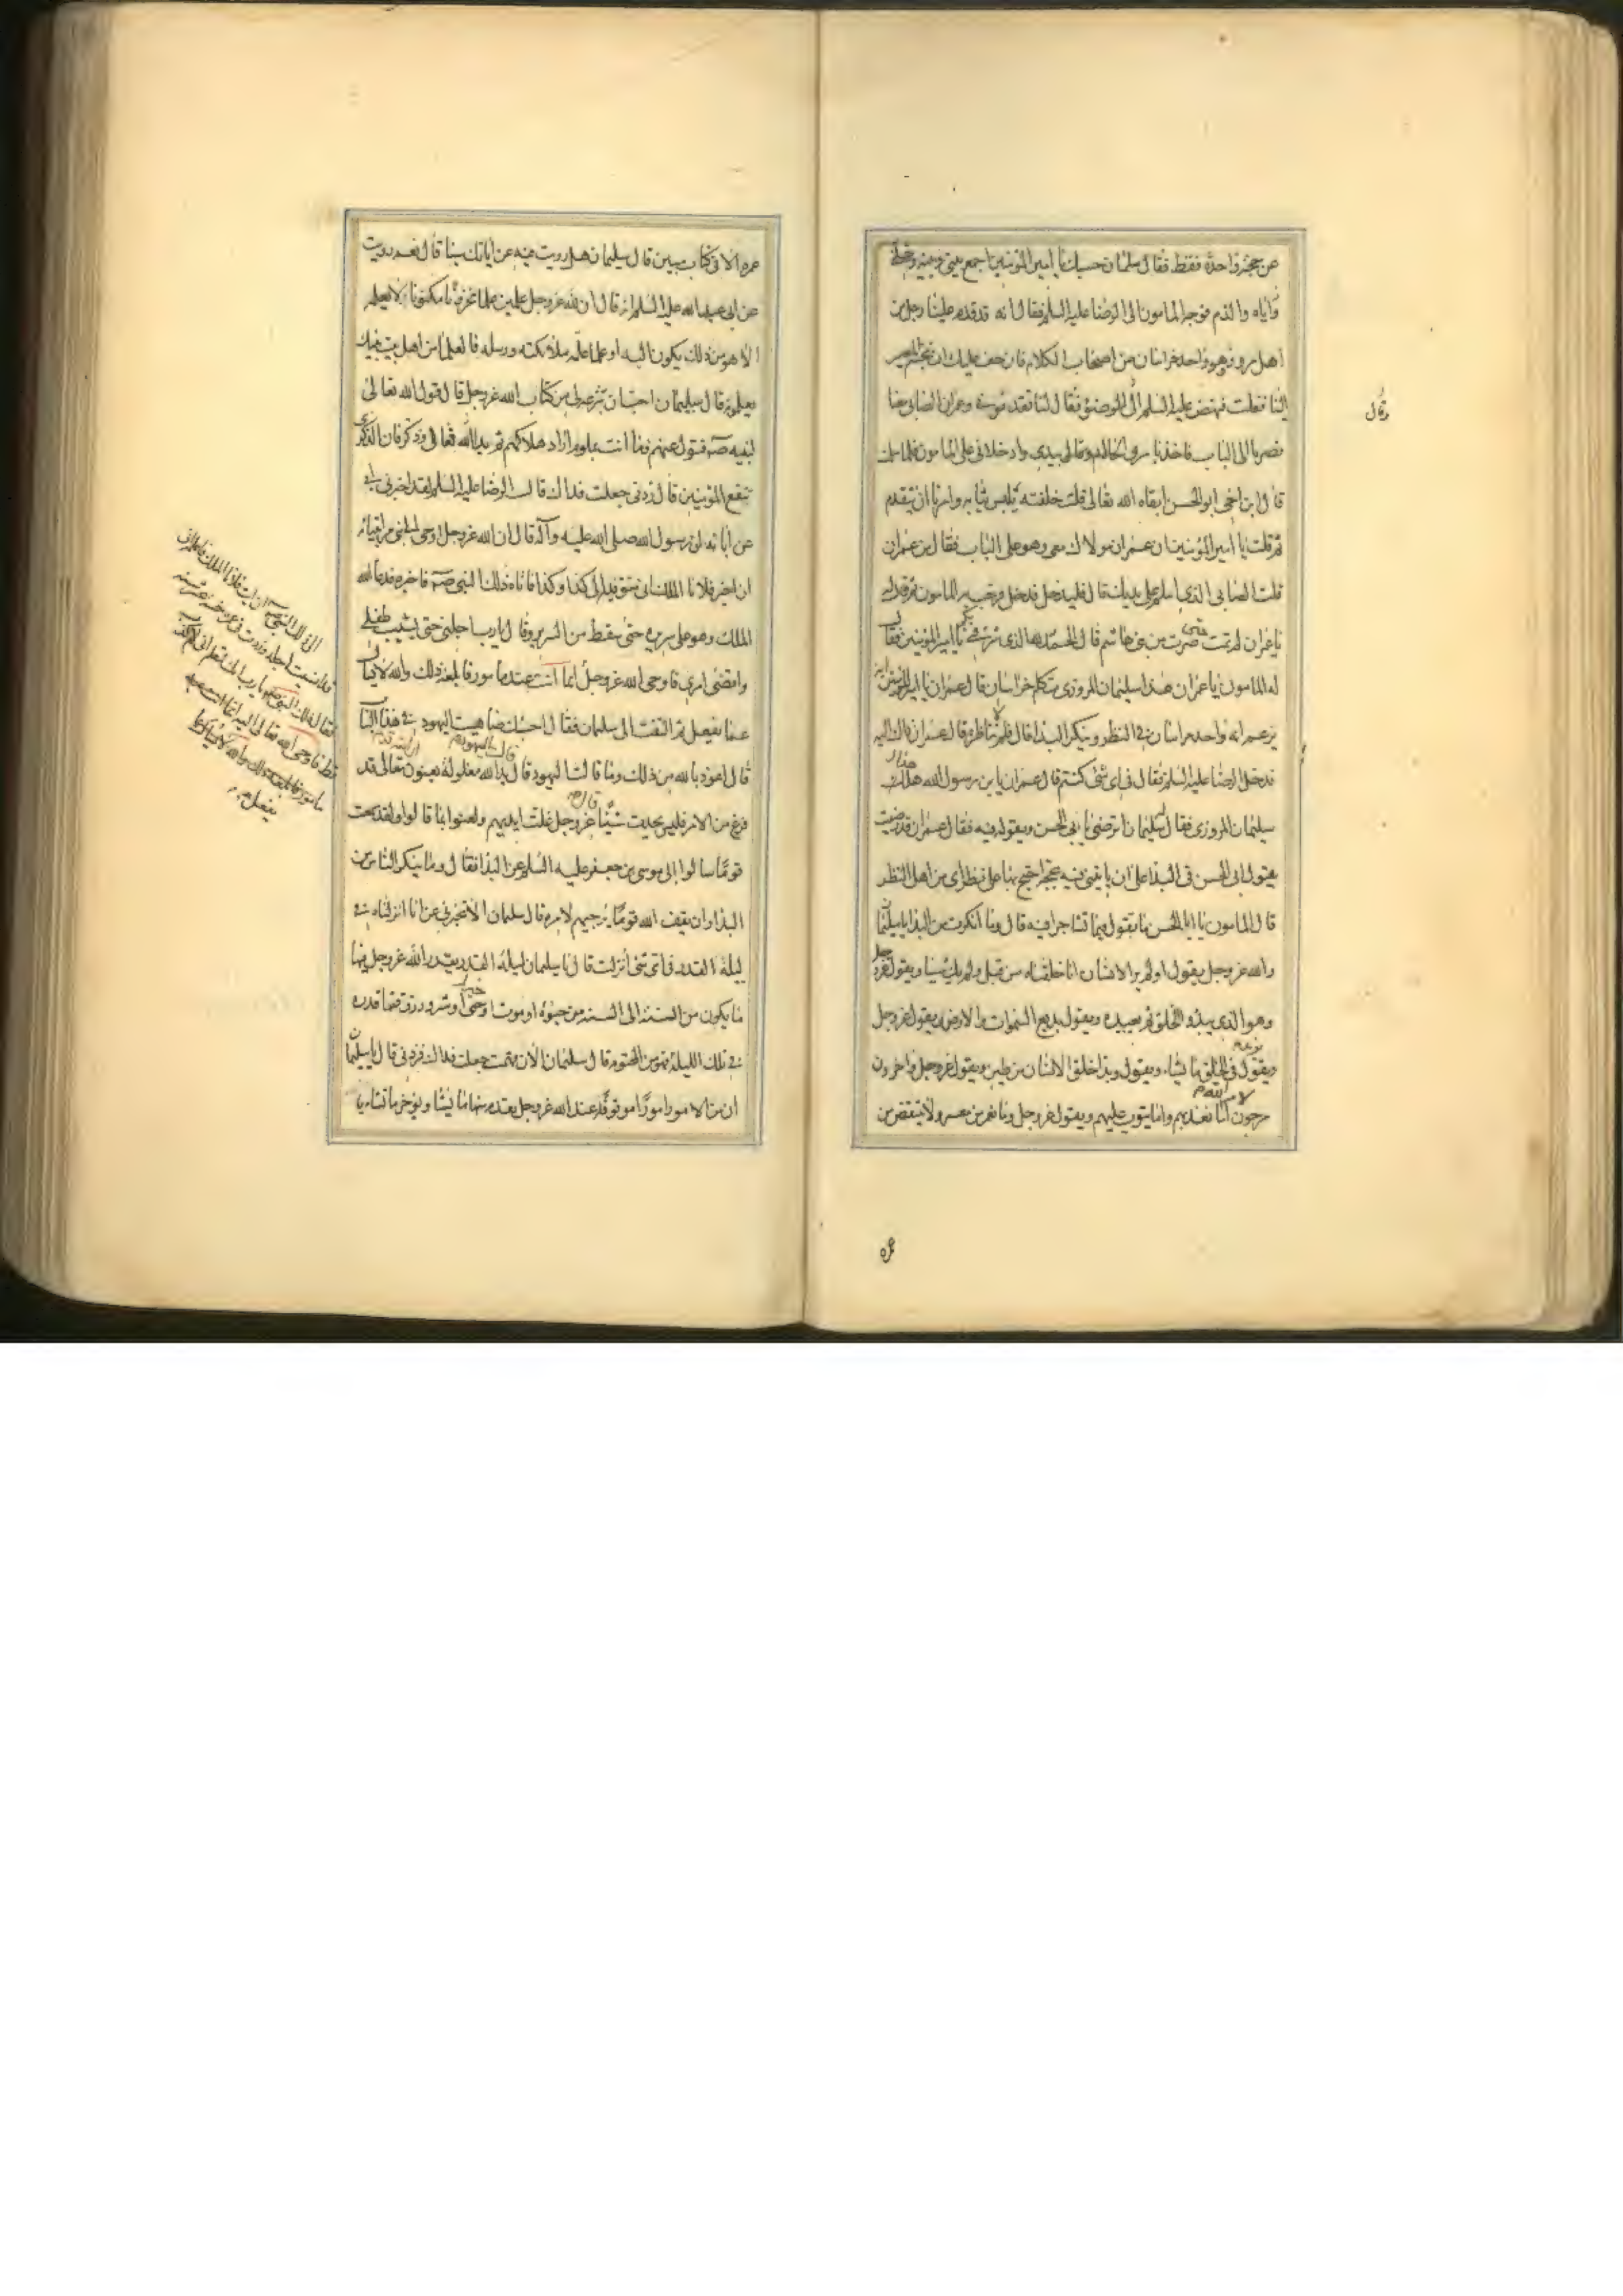 عن حجة واحدة فقط فقال سلمان حسبك يا امير المؤمنين اجمع بيني وبينه وخلني
واياه والذم فوجه المامون الى الرضا عليه السلم فقال انه قد قدم علينا رجل من
اهل مرو وهو واحد خراسان من اصحاب الكلام فان خف عليك ان تتجشم المصير
الينا فعلت فنهض عليه السلم الى الوضوء فقال لنا تقدموني وعمران الصابى معنا
فصرنا الى الباب فاخذ ياسر والخالد وقالي بيدي وادخلاني على المامون فلما سلمت
قال اين اخي ابو الحسن ابقاه الله تعالى قلت خلفته يلبس ثيابه وامرنا ان نتقدم
ثم قلت يا امير المؤمنين ان عمران مولاك معي وهو على الباب فقال من عمران
قلت الصابى الذي اسلم على يديك قال فليدخل فدخل فرحب به المامون ثم قال له
يا عمران لم تمت حتى صرت من بني هاشم قال الحمد لله الذي شرفني بكم يا امير المؤمنين فقال
له المامون يا عمران هذا سليمان المروزي متكلم خراسان قال عمران يا امير المؤمنين انه
يزعم انه واحد خراسان في النظر وينكر البدا قال فلم لا تناظره قال عمران ذاك اليه
فدخل الرضا عليه السلم فقال في اى شئ كنتم قال عمران يا بن رسول الله هذا
سليمان المروزي فقال سليمان اترضى بابى الحسن وبقوله فيه فقال عمران قد رضيت
بقول ابى الحسن في البدا على ان ياتيني فيه بحجة احتج بها على نظراى من اهل النظر
قال المامون يا ابا الحسن ما تقول فيما تشاجرا فيه قال وما انكرت من البدا يا سليمان
والله عز وجل يقول اولم ير الانسان انا خلقناه من قبل ولم يك شيئا ويقول عز وجل
وهو الذي يبدؤ الخلق ثم يعيده ويقول بديع السموات والارض ويقول عز وجل
ويقول يزيد في الخلق ما يشاء ويقول وبدا خلق الانسان من طين ويقول عز وجل واخرون
مرجون لامر الله اما يعذبهم واما يتوب عليهم ويقول عز وجل وما يعمر من معمر ولا ينقص من
وقال
عمره الا في كتاب مبين قال سليمان هل رويت فيه عن ابائك شيئا قال نعم رويت
عن ابى عبد الله عليه السلم انه قال ان لله عز وجل علمين علما مخزونا مكنونا لا يعلمه
الا هو من ذلك يكون البدا وعلما علمه ملائكته ورسله فالعلماء من اهل بيت نبيك
يعلمونه قال سليمان احب ان تنزعه لي من كتاب الله عز وجل قال قول الله تعالى
لنبيه صم فتول عنهم فما انت بملوم اراد هلاكهم ثم بدا لله فقال وذكر فان الذكرى
تنفع المؤمنين قال زدني جعلت فداك قال الرضا عليه السلم لقد اخبرني ابى
عن ابائه ان رسول الله صلى الله عليه وآله قال ان الله عز وجل اوحى الى نبي من انبيائه
ان اخبر فلانا الملك انى متوفيه الى كذا وكذا فاتاه ذلك النبى صم فاخبره فدعا الله
الملك وهو على سريره حتى سقط من السرير وقال يا رب اجلني حتى يشيب طفلي
واقضى امري فاوحى الله عز وجل انما انت عبد مامور فابلغه ذلك والله لا يسال
عما يفعل ثم التفت الى سليمان فقال احسبك ضاهيت اليهود في هذا الباب
قال اعوذ بالله من ذلك وما قالت اليهود قال قالت اليهود يد الله مغلولة يعنون تعالى قد
فرغ من الامر فليس يحدث شيئا قال الله عز وجل غلت ايديهم ولعنوا بما قالوا ولقد سمعت
قوما سالوا ابى موسى بن جعفر عليه السلم عن البدا فقال وما ينكر الناس من
البدا وان يقف الله قوما يرجيهم لامره قال سلمان الا تخبرني عن انا انزلناه في
ليلة القدر في اى شئ انزلت قال يا سليمان ليلة القدر يقدر الله عز وجل فيها
ما يكون من السنة الى السنة من حيوة او موت او خير او شر او رزق فما قدره
في تلك الليلة فهو من المحتوم قال سليمان الان فهمت جعلت فداك فزدني قال يا سليمان
ان من الامور امورا موقوفة عند الله عز وجل يقدم منها ما يشاء ويؤخر ما يشاء يا
فقال ذلك النبى يا رب انك تعلم انى لم اكذب
قط فاوحى الله تعالى اليه انما انت عبد
مامور فابلغه ذلك والله لا يسال عما
يفعل